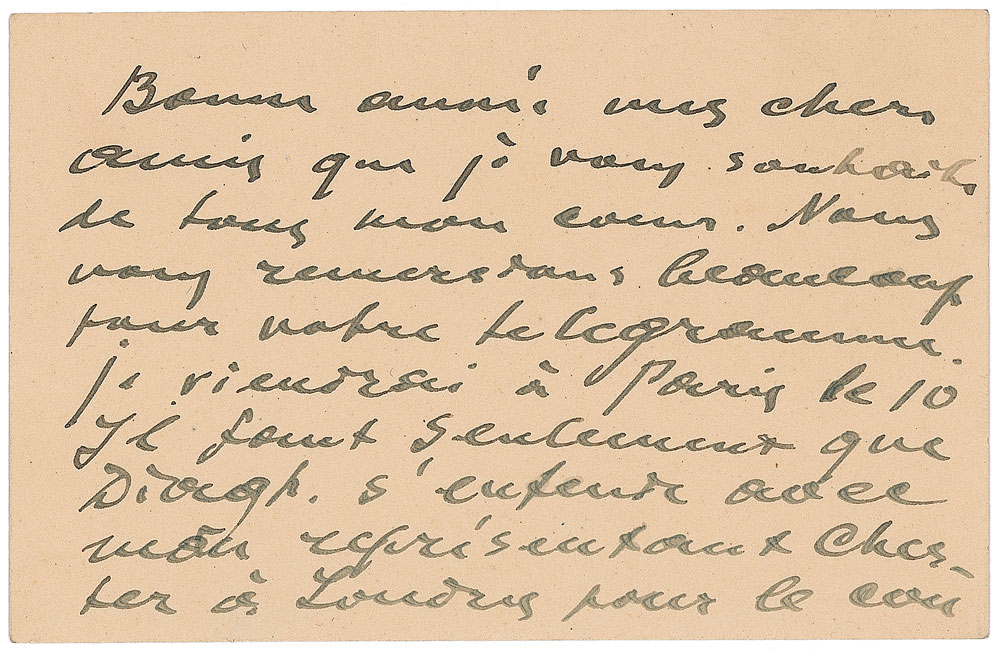 Bonne année mes chers
amis que je vous souhaite
de tous mon coeur. Nous
vous remercions beaucoup
pour votre telegramme.
je viendrai à Paris le 10
Il faut seulement que
Diagh. s'entende avec
mon représentant Ches-
ter à Londres pour le con